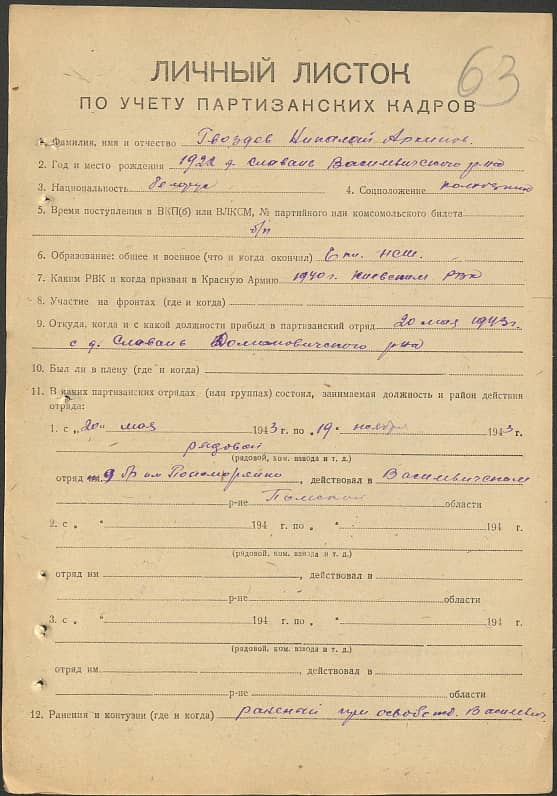 63
ЛИЧНЫЙ ЛИСТОК
ПО УЧЕТУ ПАРТИЗАНСКИХ КАДРОВ
1. Фамилия, имя и отчество Гвоздев Николай Архипов.
2. Год и место рождения 1922 д. Славань Василевичского р-на
3. Национальность белорус 4. Соцположение
5. Время поступления в ВКП(б) или ВЛКСМ, № партийного или комсомольского билета
б/п
6. Образование: общее и военное (что и когда окончил) нсш.
7. Каким РВК и когда призван в Красную Армию 1940 г. Киевским РВК
8. Участие на фронтах (где и когда)
9. Откуда, когда и с какой должности прибыл в партизанский отряд 20 мая 1943 г.
с д. Славань Домановичского р-на
10. Был ли в плену (где и когда)
11. В каких партизанских отрядах (или группах) состоял, занимаемая должность и район действия
отряда:
1. с „20" мая 1943 г. по „19" ноября 1943 г.
рядовой
(рядовой, ком. взвода и т. д.)
отряд им. Пономарейко, действовал в Василевичском
р-не Полеской области
2. с „ " 194 г. по „ " 194 г.
(рядовой, ком. взвода и т. д.)
отряд им , действовал в
р-не области
3. с „ " 194 г. по „ " 194 г.
(рядовой, ком. взвода и т. д.)
отряд им. , действовал в
р-не области
12. Ранения и контузии (где и когда) при Василевич